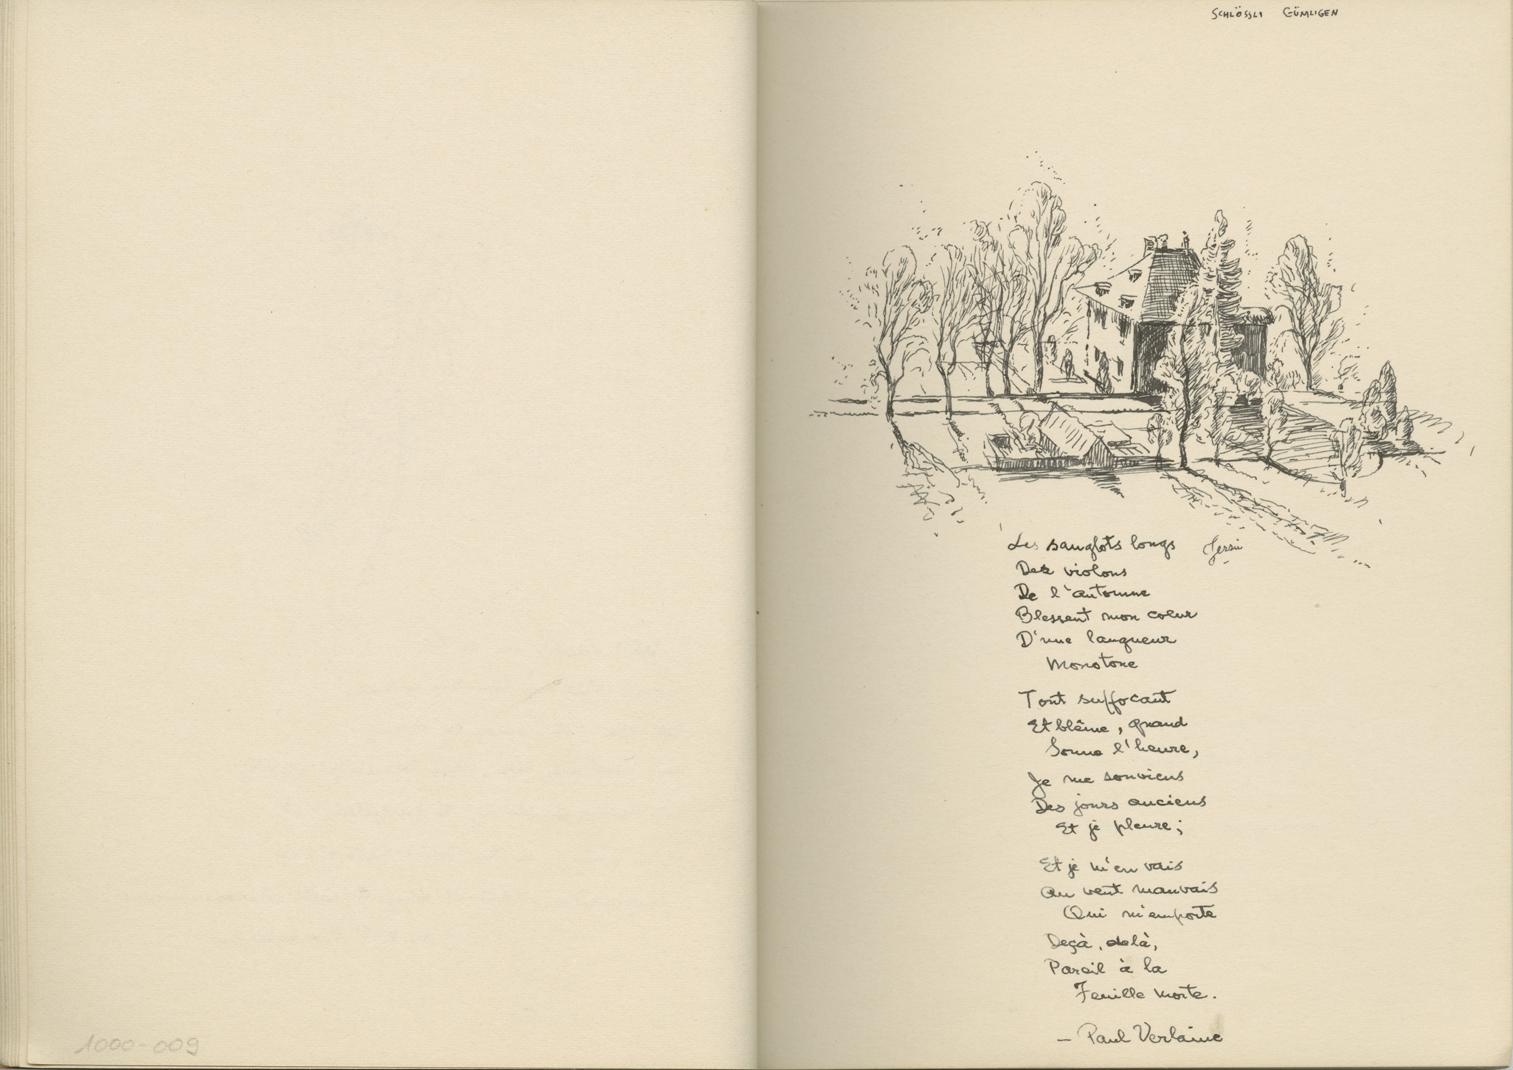 1000-009
SCHLÖSSLI GÜMLIGEN
Les sanglots longs
Des violons
De l'automne
Blessent mon coeur
D'une langueur
Monotone
Tout suffocant
Et blême, quand
Sonne l'heure,
Je me souviens
Des jours anciens
Et je pleure;
Et je m'en vais
Au vent mauvais
Qui m'emporte
Deçà, delà,
Pareil à la
Feuille morte.
— Paul Verlaine